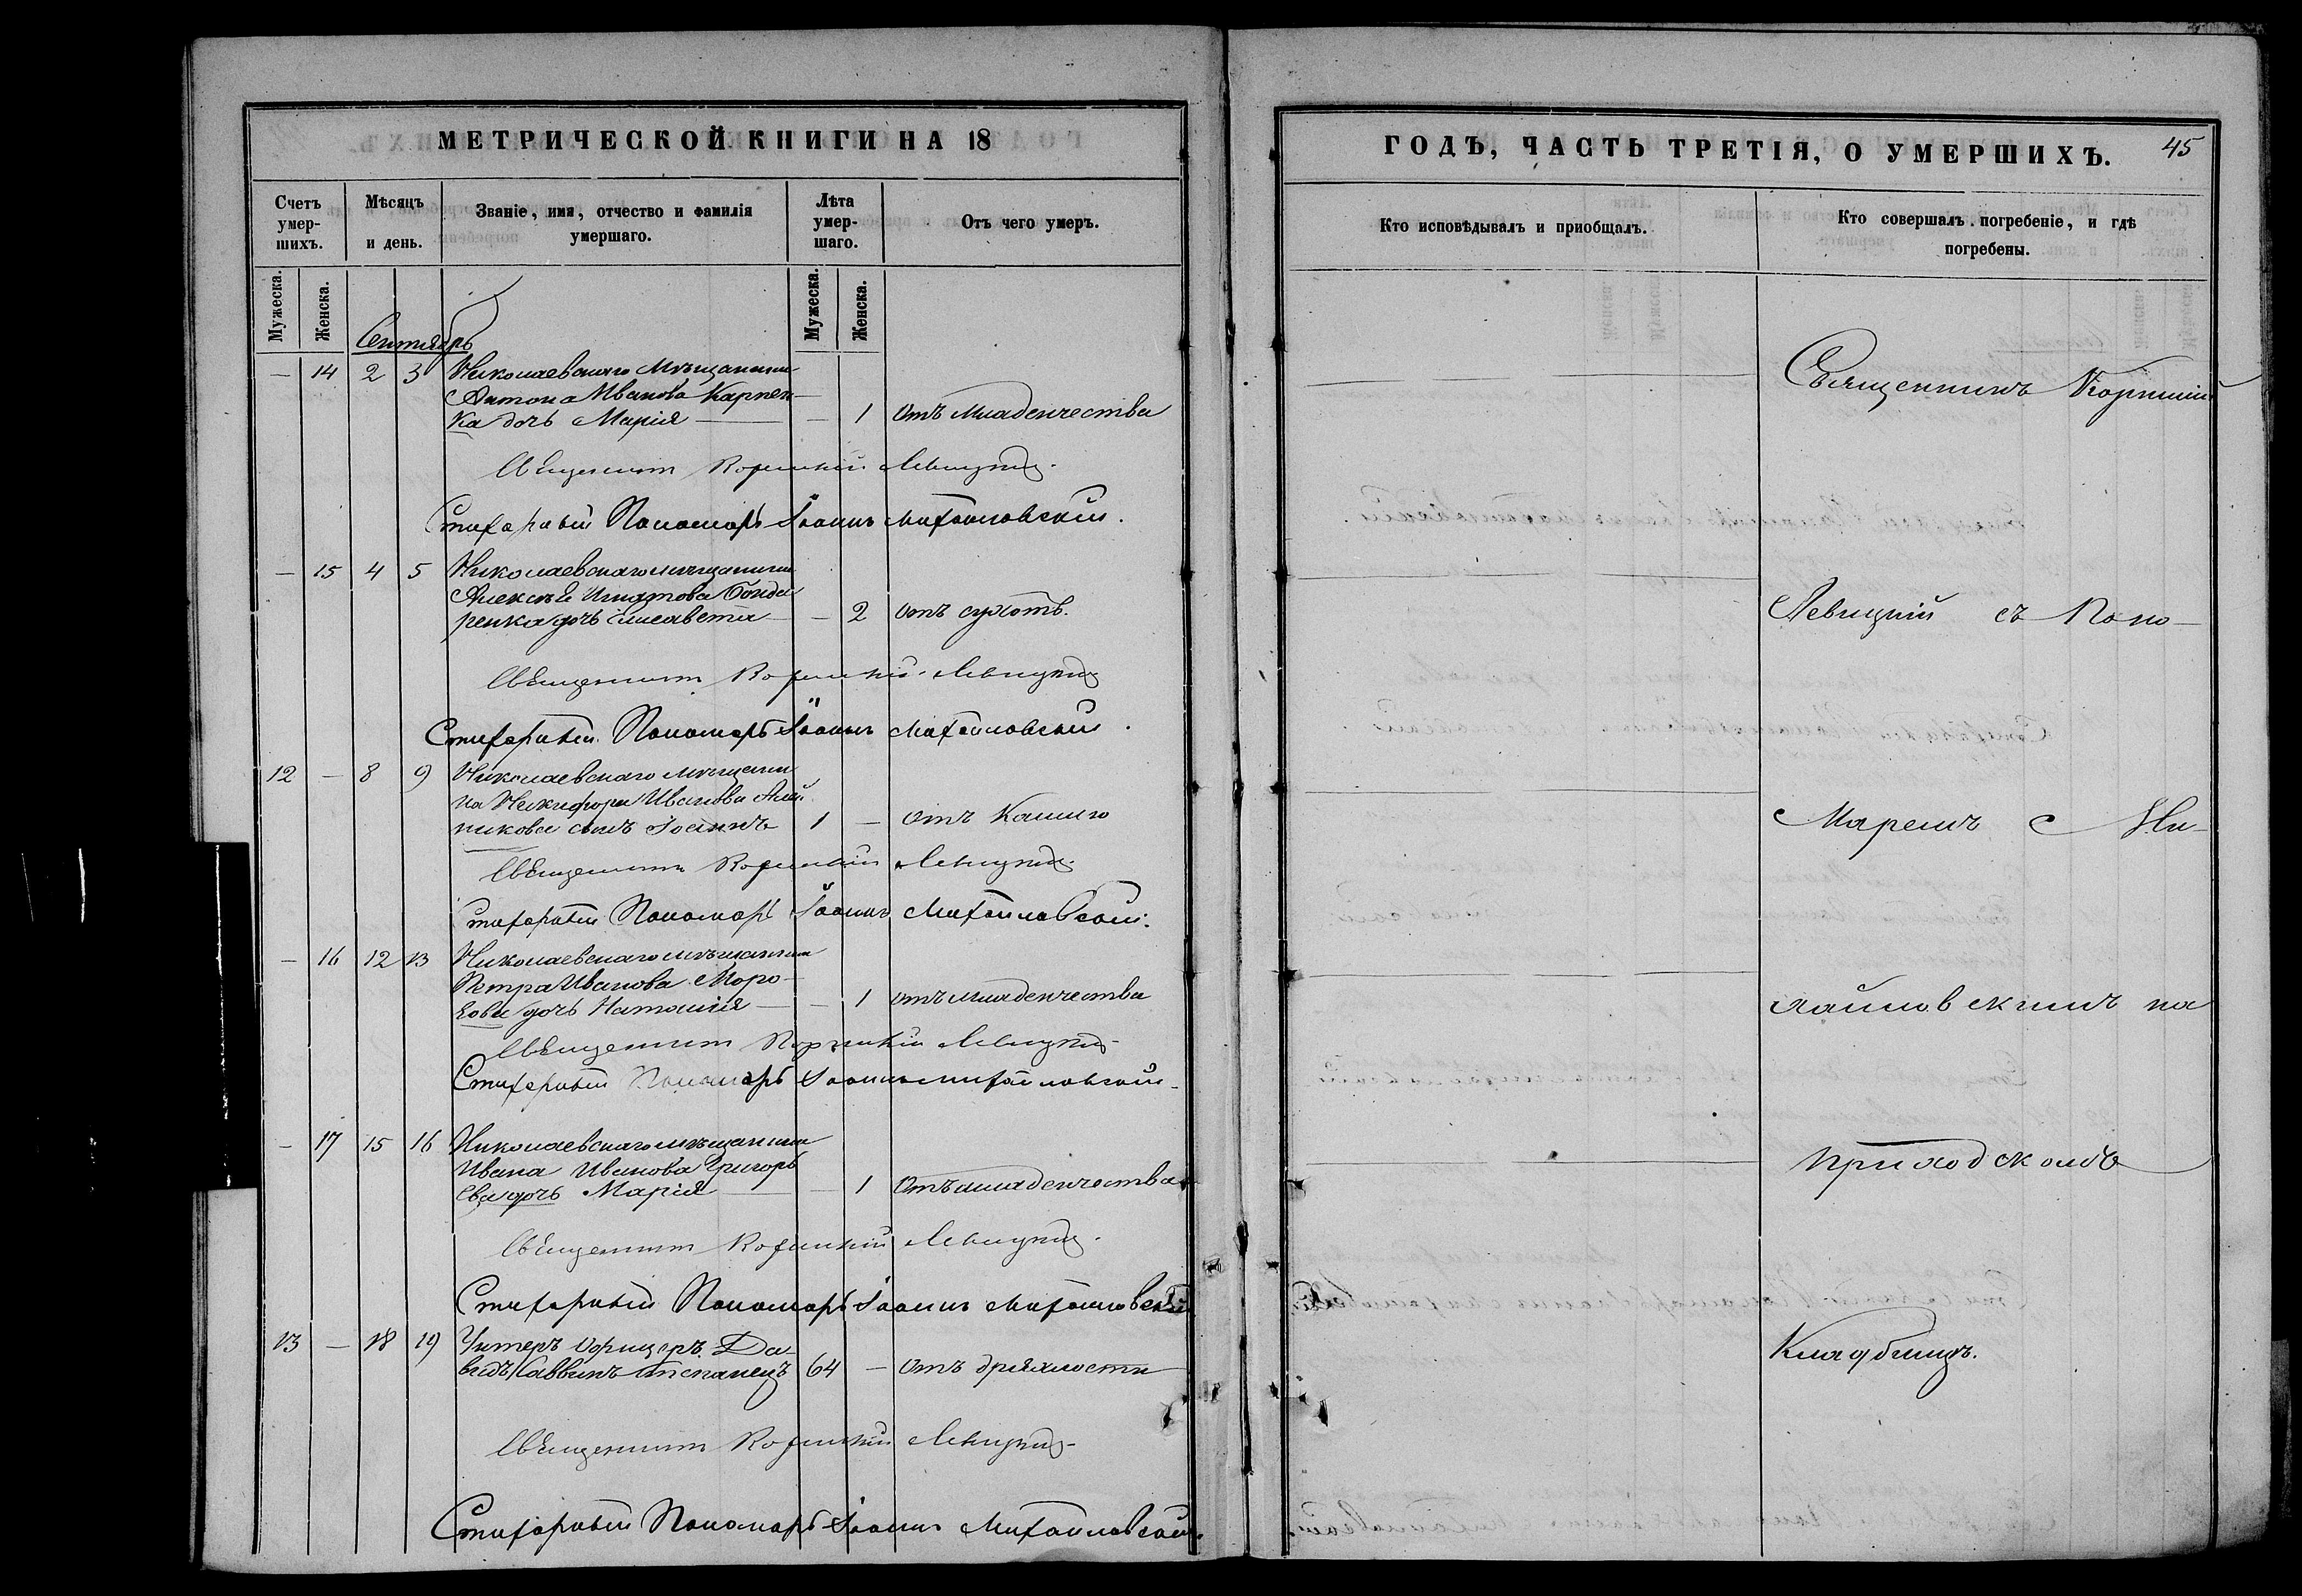 МЕТРИЧЕСКОЙ КНИГИ НА 18
Счетъ умер-шихъ.
Мѣсяцъ и день.
Званіе, имя, отчество и фамилія умершаго.
Лѣта умер-шаго.
Отъ чего умеръ.
Мужеска.
Женска.
Мужеска.
Женска.
Сентябрь
— 14 2 3 Николаевскаго мѣщанина
Антона Иванова Карпен-
ка дочь Марія — — 1 отъ младенчества
Священникъ Корницкій Левицкій.
Стихарный Пономарь Іоаннъ Михайловскій.
— 15 4 5 Николаевскаго мѣщанина
Алексѣя Игнатова Бонда
ренка дочь Елисавета — — 2 отъ сухотъ.
Священникъ Левицкій
Стихарный Пономарь Іоаннъ Михайловскій.
12 — 8 9 Николаевскаго мѣщани
на Никифора Иванова
никова сынъ Іоаннъ 1 — отъ Кашлю
Священникъ Левицкій.
Стихарный Пономарь Іоаннъ Михайловскій.
— 16 12 13 Николаевскаго мѣщанина
Петра Иванова Моро-
зова дочь Наталія — — 1 отъ младенчества
Священникъ Левицкій
Стихарный Пономарь Іоаннъ Михайловскій.
— 17 15 16 Николаевскаго мѣщанина
Ивана Иванова Григорь
ева дочь Марія — — 1 Отъ младенчества
Священникъ Левицкій.
Стихарный Пономарь Іоаннъ Михайловскій
13 — 18 19 Унтеръ Офицеръ Да-
видъ Саввинъ 64 — отъ дряхлости
Священникъ Левицкій.
Стихарный Пономарь Іоаннъ Михайловскій.
ГОДЪ, ЧАСТЬ ТРЕТІЯ, О УМЕРШИХЪ. 45
Кто исповѣдывалъ и пріобщалъ.
Кто совершалъ погребеніе, и гдѣ погребены.
Священникъ
Левицкій съ Поно-
маремъ Ми-
хайловскимъ на
приходскомъ
Кладбищѣ.